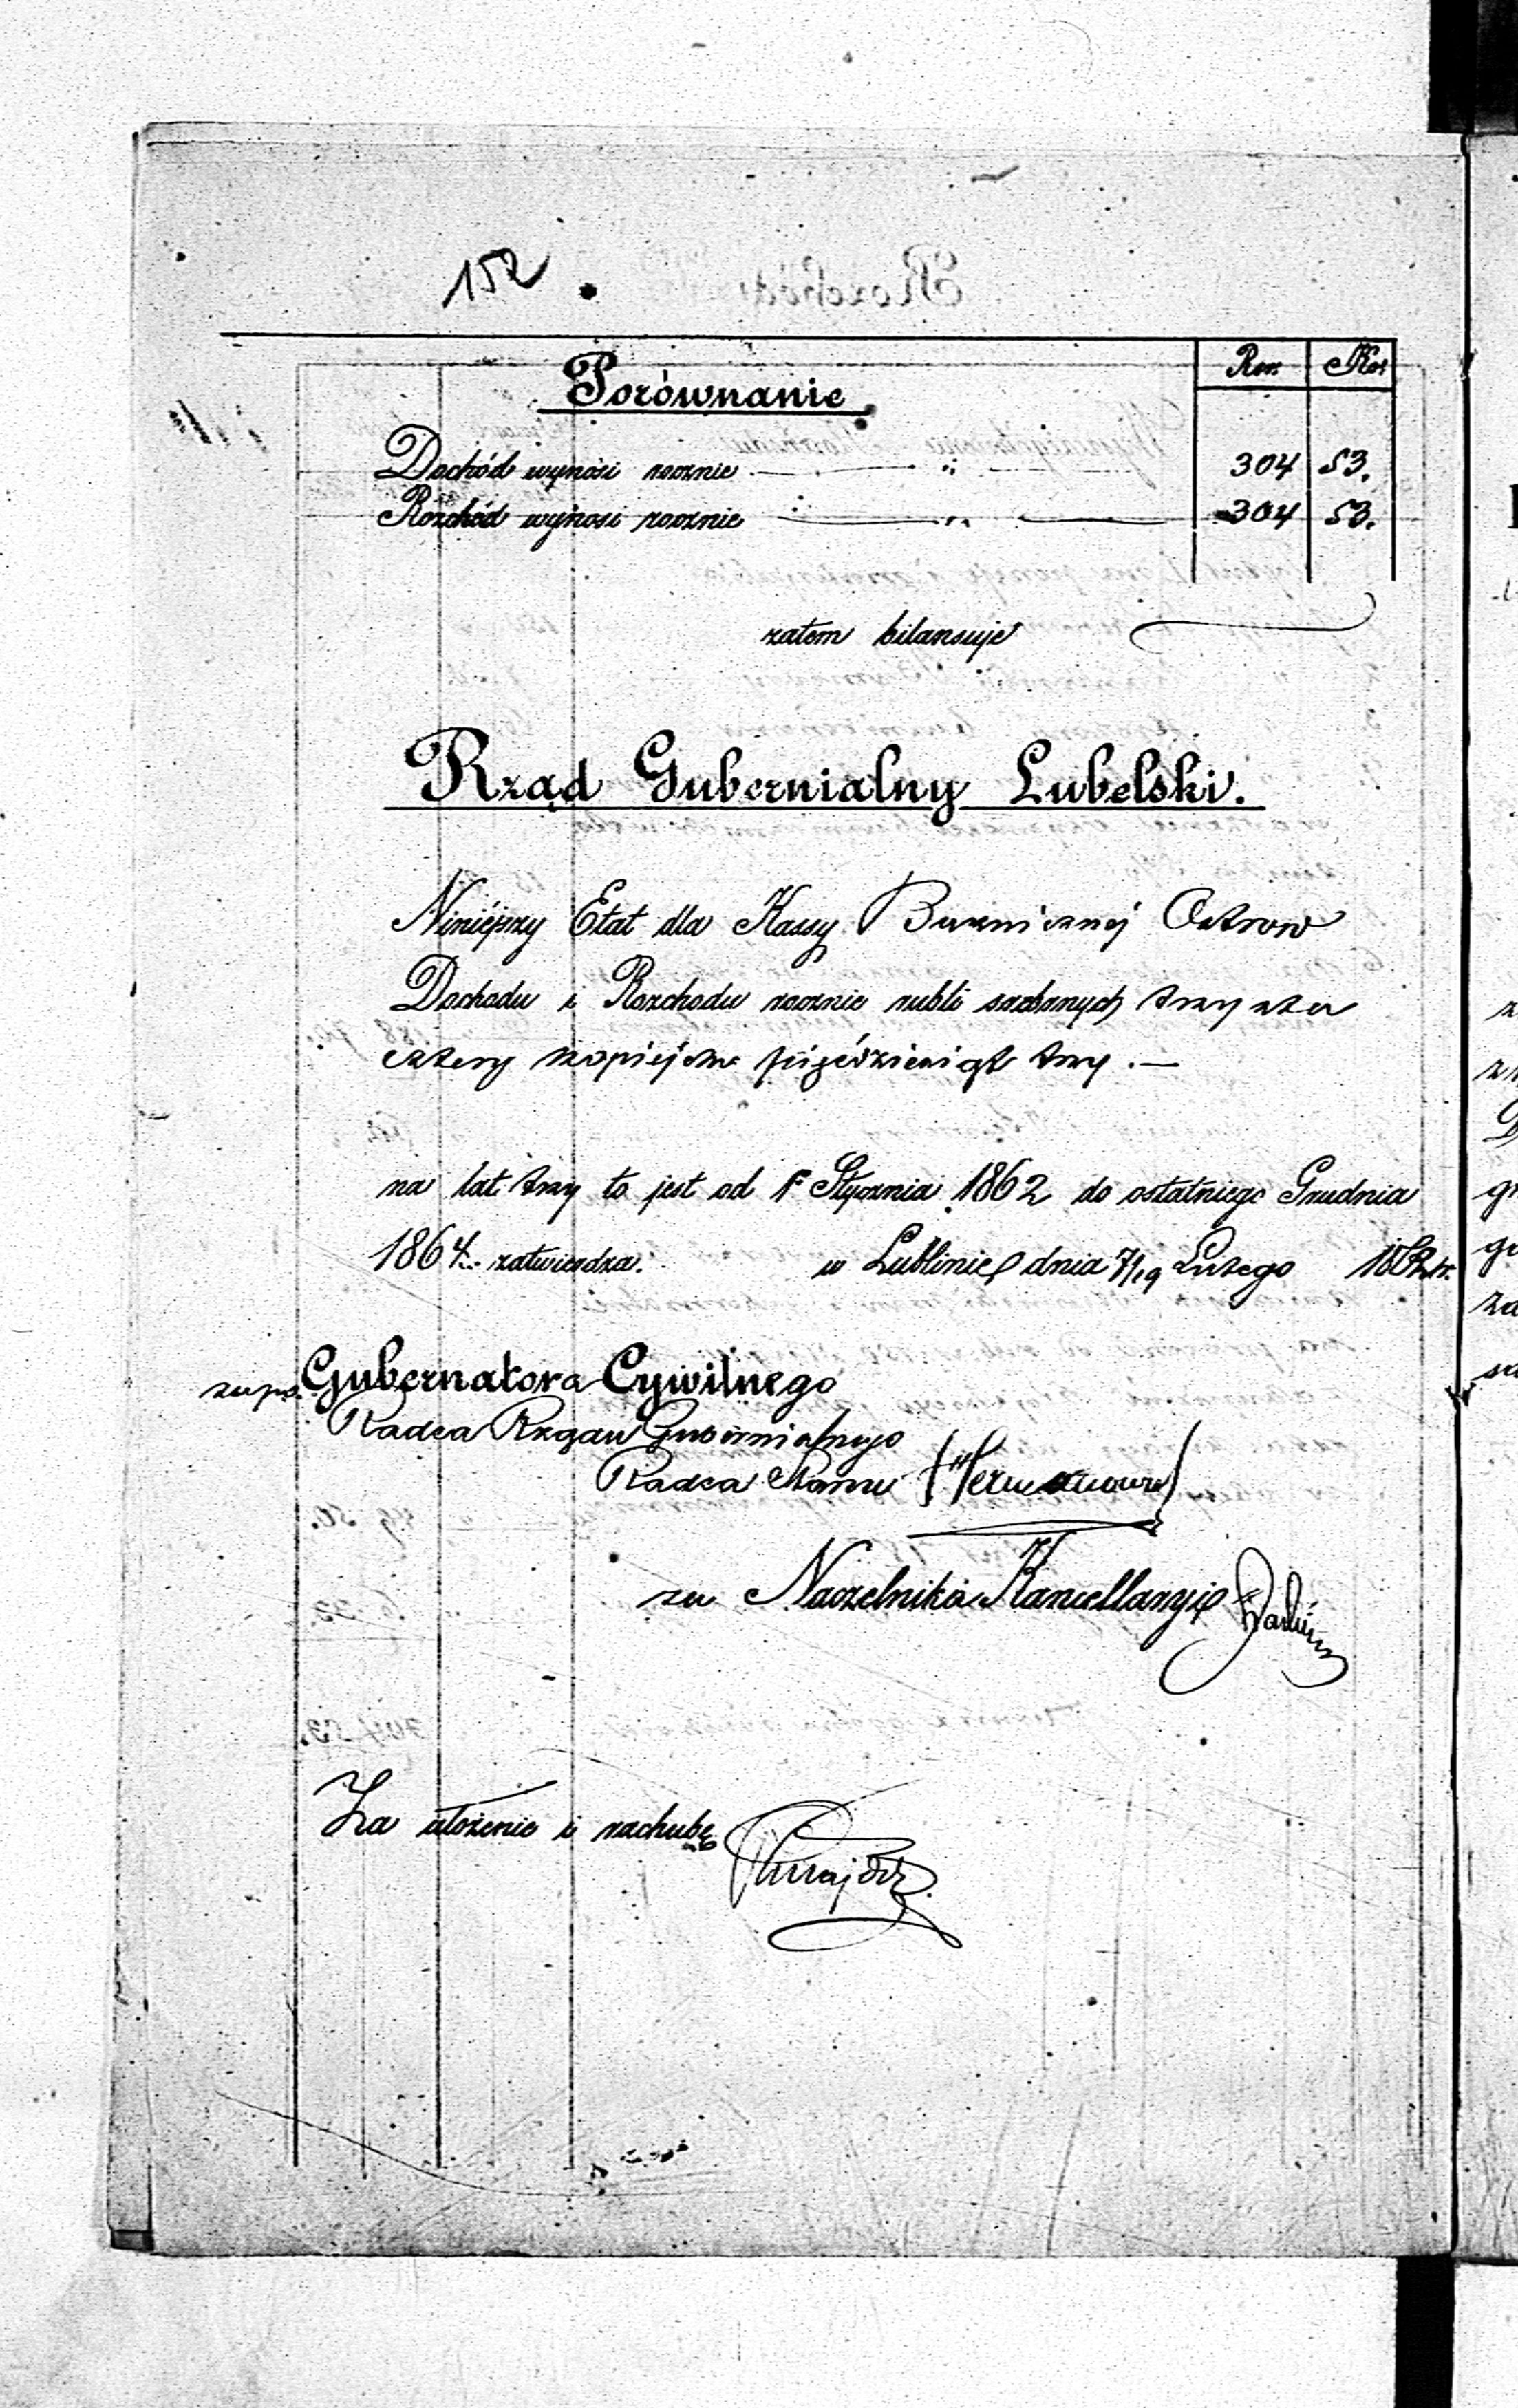 152
Porównanie
Rsr. Kop.
Dochód wynosi rocznie „ 304 53.
Rozchód wynosi rocznie „ 304 53.
zatem bilansuje
Rząd Gubernialny Lubelski.
Niniéjszy Etat dla Kassy Bużnicznéj Ostrow
Dochodu i Rozchodu rocznie rubli srebrnych trzysta
cztery kopiejek pięćdziesiąt trzy.—
na lat trzy to jest od 1 Stycznia 1862 do ostatniego Grudnia
1864 zatwierdza. w Lublinie dnia 7/19 Lutego 1862 r.
Gubernatora Cywilnego
Radca Rządu Gubernialnego
Radca Stanu
za Naczelnika Kancellaryi
Za ułożenie i rachubę